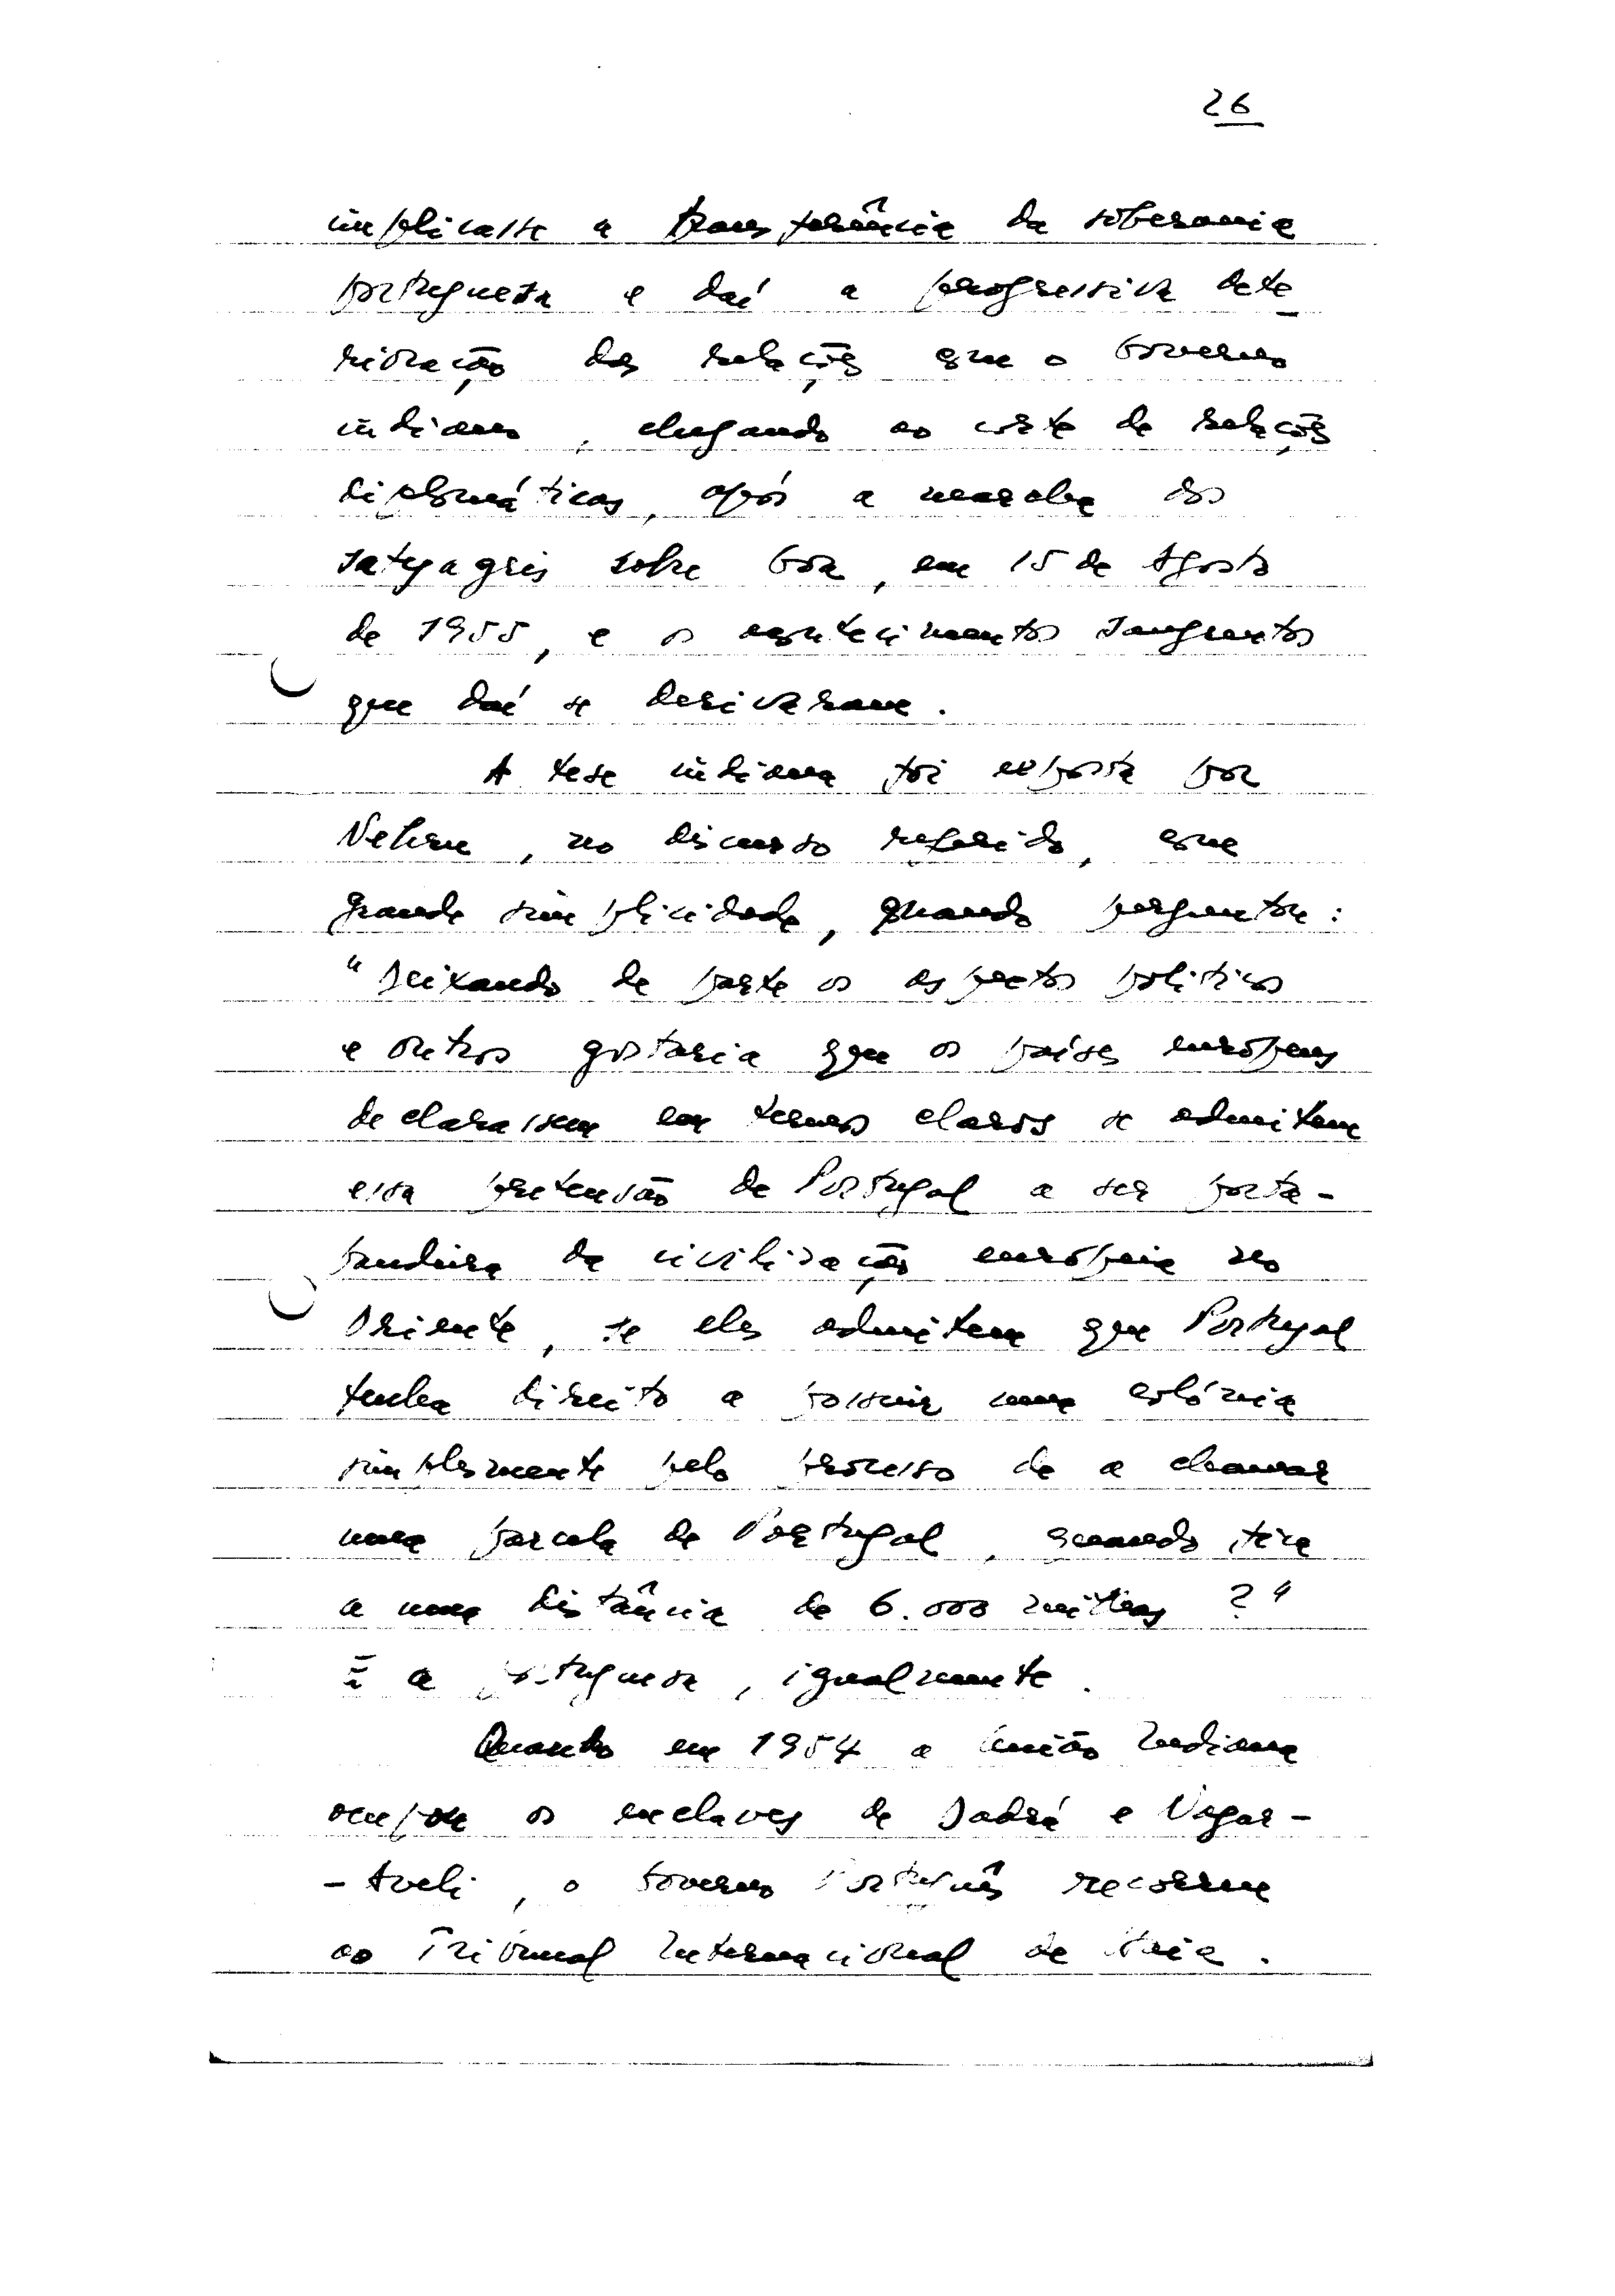 26
implicasse a transferência da soberania
portuguesa e daí a progressiva dete
rioração das relações com o Governo
indiano, chegando ao corte de relações
diplomáticas, após a marcha dos
satyagris sobre Goa, em 15 de Agosto
de 1955, e os acontecimentos sangrentos
que daí se derivaram.
A tese indiana foi exposta por
Nehru, no discurso referido, com
grande simplicidade, quando pergunta:
"Deixando de parte os aspectos politicos
e outros gostaria que os países europeus
declarassem em termos claros se admitem
essa pretensão de Portugal a ser porta-
bandeira da civilização europeia no
Oriente, se eles admitem que Portugal
tenha direito a possuir uma colónia
simplesmente pelo processo de a chamar
uma parcela de Portugal, quando fica
a uma distância de 6.000 milhas?"
E a portuguesa, igualmente.
Quando em 1954 a União Indiana
ocupou os enclaves de Dadrá e Nagar-
-Aveli, o Governo Português recorreu
ao Tribunal Internacional de Haia.